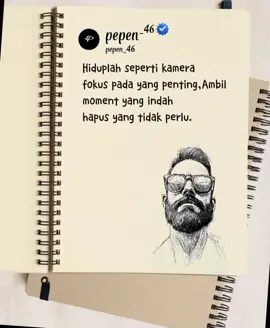 pepen_46
pepen_46
Hiduplah seperti kamera
fokus pada yang penting,Ambil
moment yang indah
hapus yang tidak perlu.